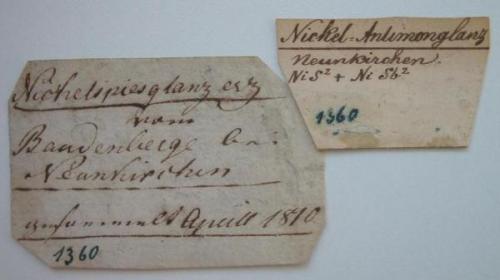 Nickelspiesglanz erz
vom
Baudenberge bei
Neunkirchen
gesammelt Aprill 1810
1360
Nickel-Antimonglanz
Neunkirchen.
NiS² + Ni Sb²
1360